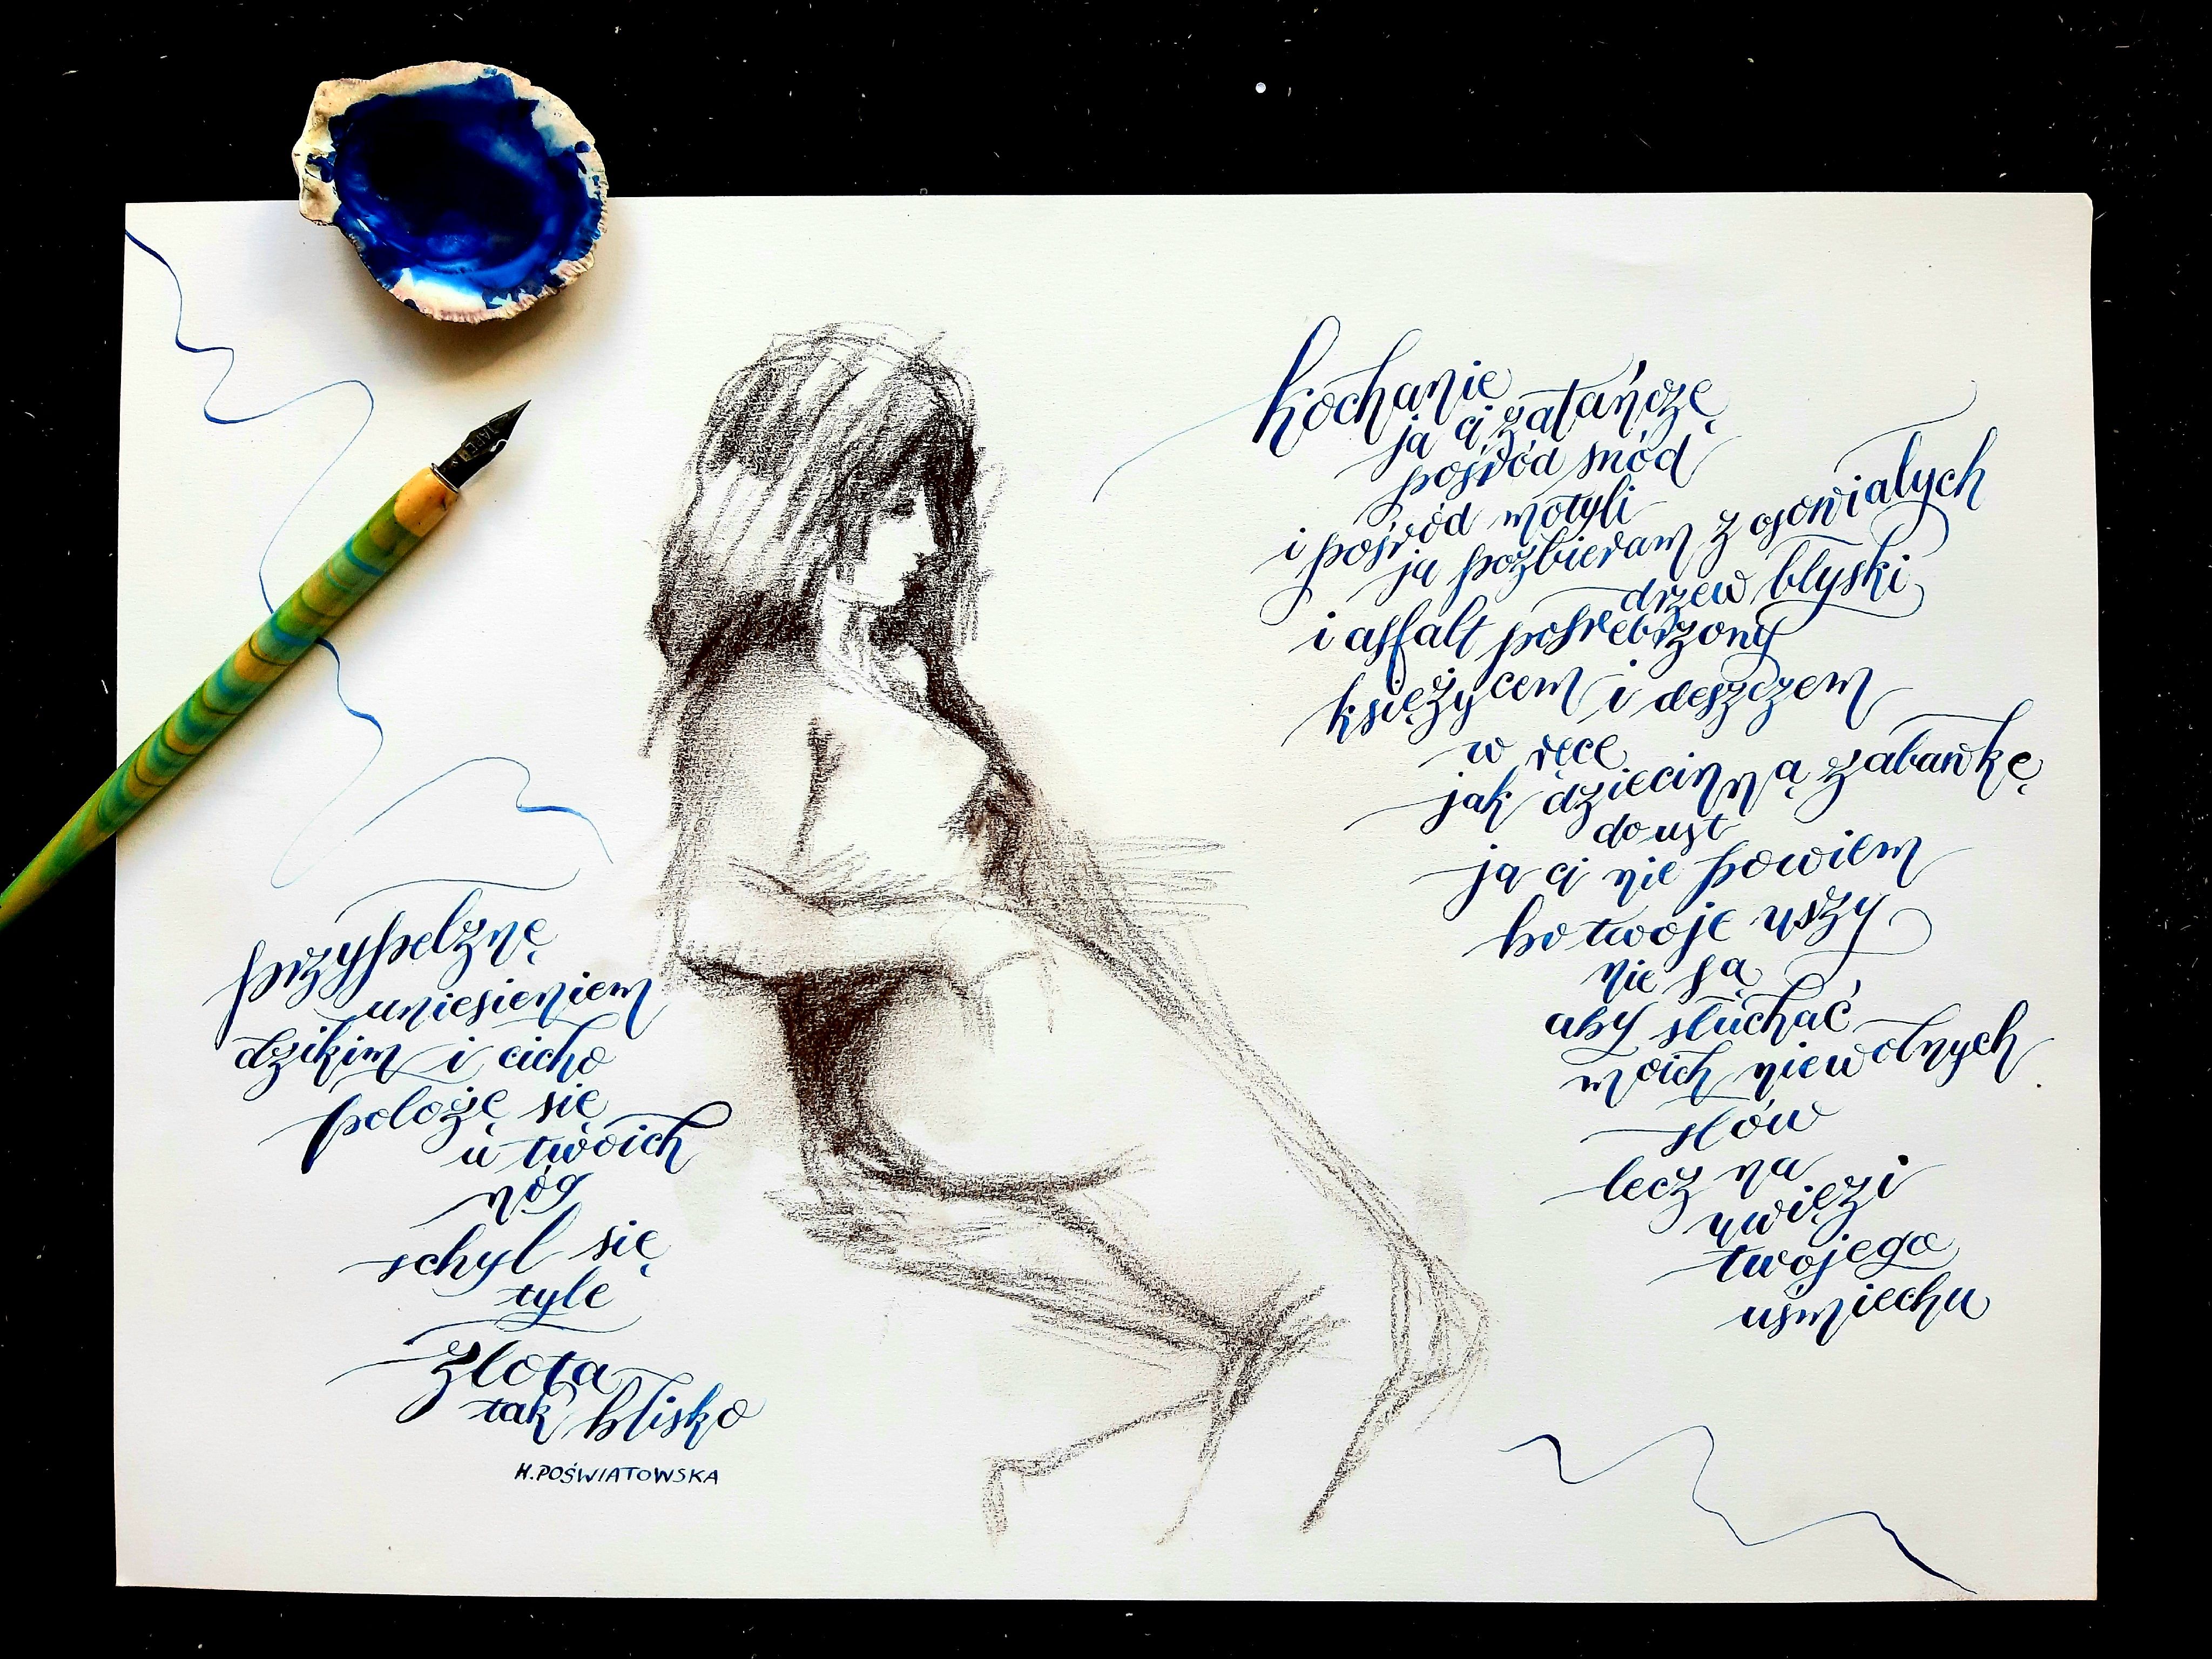 kochanie
ja ci zatańczę
pośród snód
i pośród motyli
ja pozbieram z osowiałych
drzew błyski
i asfalt posrebrzony
księżycem i deszczem
w ręce
jak dziecinną zabawkę
do ust
ja ci nie powiem
bo twoje uszy
nie są
aby słuchać
moich niewolnych
słów
lecz na
uwięzi
twojego
uśmiechu
przypełznę
uniesieniem
dzikim i cicho
położę się
u twoich
nóg
schyl się
tyle
złota
tak blisko
H. POŚWIATOWSKA